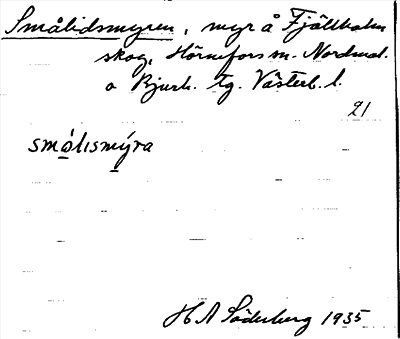 Smålidsmyren, myr å Fjällboda
skog, Hörnefors sn. Nordmal.
o Bjurh. tg. Västerb. l.
21
smålismýra
H A Söderberg 1935